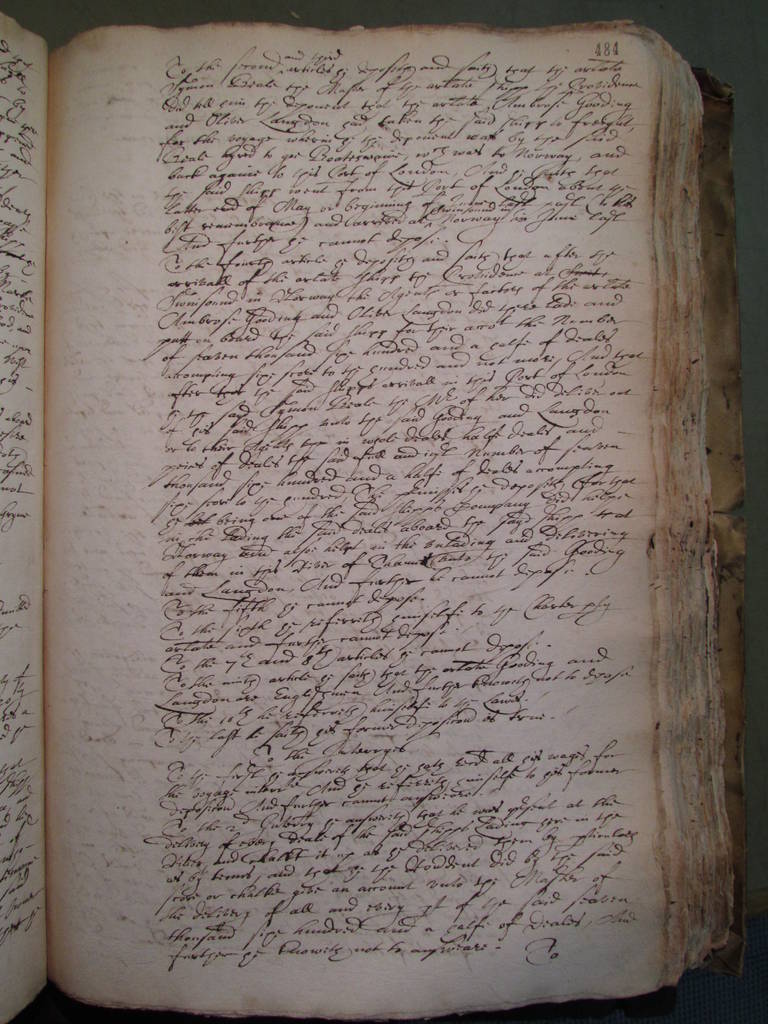 484
and third
To the second articles he deposeth and saith that the arlate
Symon Beale the Master of the arlate shipp the Providence
did tell him this deponent that the arlate Ambrose Gooding
and Oliver Langdon had taken the said shipp to freight,
for the voyage wherein he this deponent was by the said
Beale hyred to goe Boatswaine, wch was to Norway, and
back againe to this Port of London, And he saith that
the said shipp went from this Port of London about the
latter end of May or beginning of June last (to his
best remembrance) and arrived at Swinsound in Norway in June last
And further he cannot depose.
To the fourth article he deposeth and saith that after the
arrivall of the arlate shipp the Providence at
Swinsound in Norway the Agents or factors of the arlate
Ambrose Gooding and Oliver Langdon did there lade and
putt on board the said shipp for their accot the Number
of seaven thousand six hundred and a halfe of deales
accompting six score to the hundred and not more, And that
after the said shipps arrivall in this Port of London
he the said Symon Beale the Mr of her did deliver out
of his said shipp unto the said Gooding and Langdon
or to their Agents them in whole deales halfe deales and
peices of deales the said full and iust Number of seaven
thousand six hundred and a halfe of deales accompting
six score to the hundred The premisses he deposeth for that
he being one of the said shipps Company did helpe
in the lading the said deales aboard the said shipp at
Norway and alsoe helpt in the unlading and delivering
of them in this River of Thames unto the said Gooding
and Langdon, And further he cannot depose.
To the fifth he cannot depose.
To the sixth he referreth himselfe to the Charter pty
arlate and further cannot depose.
To the 7th and 8th articles he cannot depose.
To the ninth article he saith that the arlate Gooding and
Langdon are Englishmen And further knoweth not to depose
To the 10th he referreth himselfe to the Lawe
To the last he saith his former deposicon is true.
To the Interries
To the first he answereth that he hath recd all his wages for
the voyage interrte And he referreth himselfe to his former
deposicon And further cannot answeare.
To the 2d Interry he answereth that he was present at the
delivery of every deale of the said shipps lading here in the
River, and chalkt it up as he delivered them
and that he this Rondent did by the said
score or chalke give an account unto the Master of
the delivery of all and every pt of the said seaven
thousand six hundred and a halfe of deales, And
further he knoweth not to answeare.
To